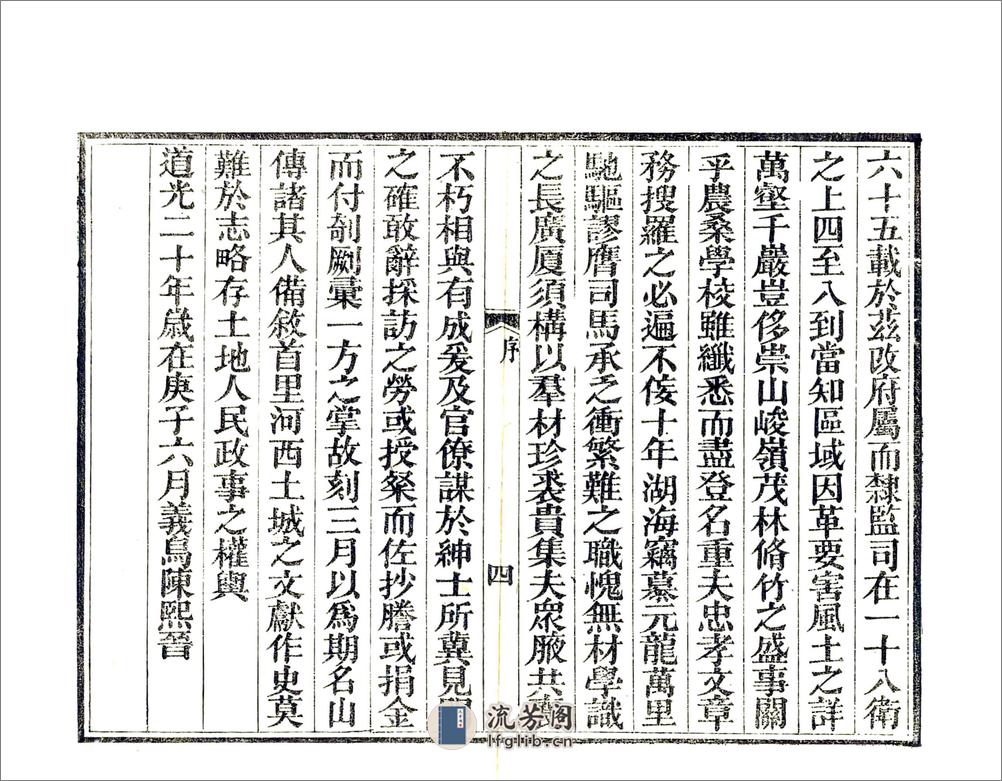 六十五載於茲改府屬而隸監司在一十八衛
之上四至八到當知區域因革要害風土之詳
萬壑千巖豈侈崇山峻嶺茂林脩竹之盛事關
乎農桑學校雖纖悉而盡登名重夫忠孝文章
務搜羅之必遍不倿十年湖海竊慕元龍萬里
馳驅謬膺司馬承乏衝繁難之職愧無材學識
之長廣厦須構以羣材珍裘貴集夫眾腋共
序
四
不朽相與有成爰及官僚謀於紳士所冀見
之確敢辭採訪之勞或授粲而佐抄謄或捐金
而付剞劂彙一方之掌故刻三月以為期名山
傳諸其人備敘首里河西土城之文獻作史莫
難於志略存土地人民政事之權輿
道光二十年歲在庚子六月義烏陳熙晉
流芳阁
lfglib.cn